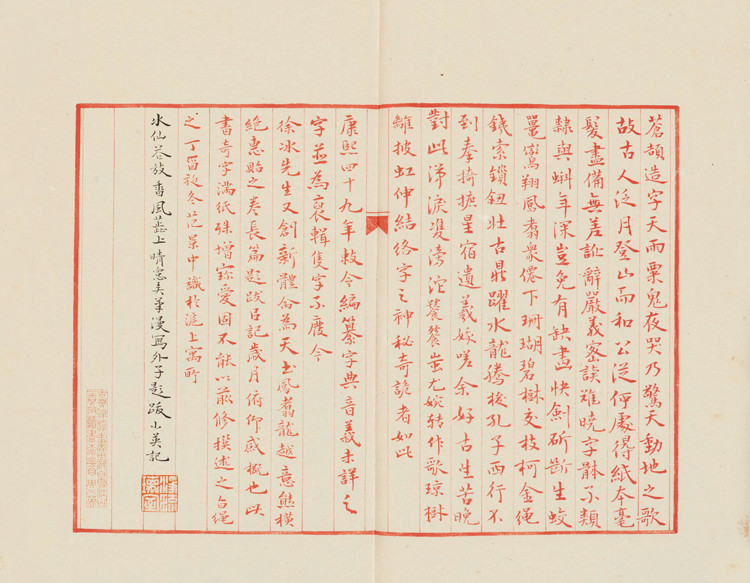 蒼頡造字天雨粟鬼夜哭乃驚天動地之歌
故古人泛月登山而和公從何處得紙本毫
髮盡備無差訛辭嚴義密讀難曉字體不類
隸與蝌年深豈免有缺畫快劍斫斷生蛟
鼉鸞翔鳳翥衆僊下珊瑚碧樹交枝柯金繩
鐵索鎖鈕壯古鼎躍水龍騰梭孔子西行不
到秦掎摭星宿遺羲娥嗟余好古生苦晚
對此涕淚雙滂沱饕餮蚩尤婉轉作歌瓊樹
離披虹伸結絡字之神秘奇詭者如此
康熙四十九年敕令編纂字典音義未詳之
字並為裒輯隻字不廢今
徐冰先生又創新體合為天書鳳翥龍越意態橫
絕惠貽之卷長篇題跋㠯記歲月俯仰感概也此
書奇字滿紙殊增寶愛固不能以前修模述之旨繩
之丁酉冬范景中識於滬上寓所
水仙花放香風上晴窓華漫寫外子題跋小英記